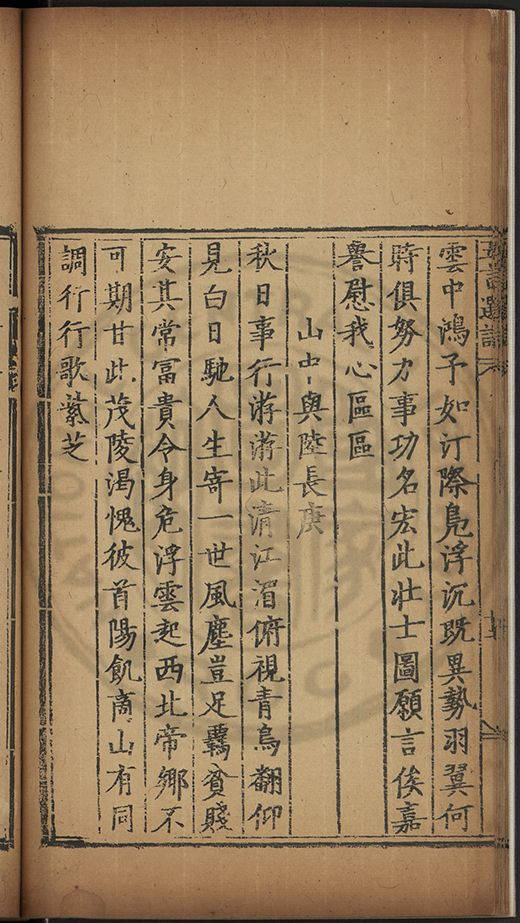 雲中鴻予如汀際鳧浮沉既異勢羽翼何
時俱努力事功名宏此壯士圖願言俟嘉
譽慰我心區區
山中與陸長庚
秋日事行游游此清江湄俯視青鳥翻仰
見白日馳人生寄一世風塵豈足羈貧賤
安其常富貴令身危浮雲起西北帝鄉不
可期甘此茂陵渴愧彼首陽飢商山有同
調行行歌紫芝